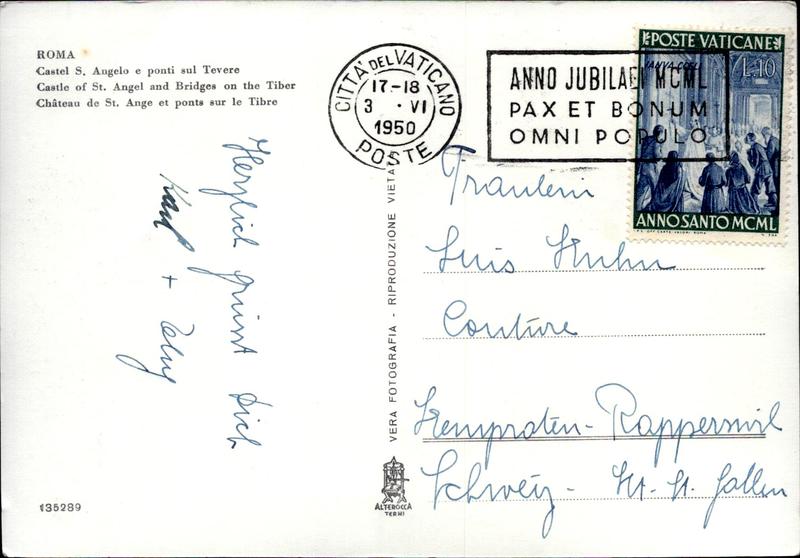 ROMA
Castel S. Angelo e ponti sul Tevere
Castle of St. Angel and Bridges on the Tiber
Château de St. Ange et ponts sur le Tibre
CITTA' DEL VATICANO
17-18
3 · VI
1950
POSTE
ANNO JUBILAEI MCML
PAX ET BONUM
OMNI POPULO
POSTE VATICANE
IANVA COELI
L.10
ANNO SANTO MCML
Herzlich grüsst Dich
Karl +
Fräulein
Luis
Couture
Kempraten-Rapperswil
Schweiz - Kt. St. Gallen
VERA FOTOGRAFIA - RIPRODUZIONE VIETATA
ALTEROCCA
TERNI
135289